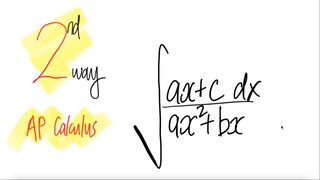 2nd
way
AP Calculus
∫ ax+c dx
ax²+bx
.